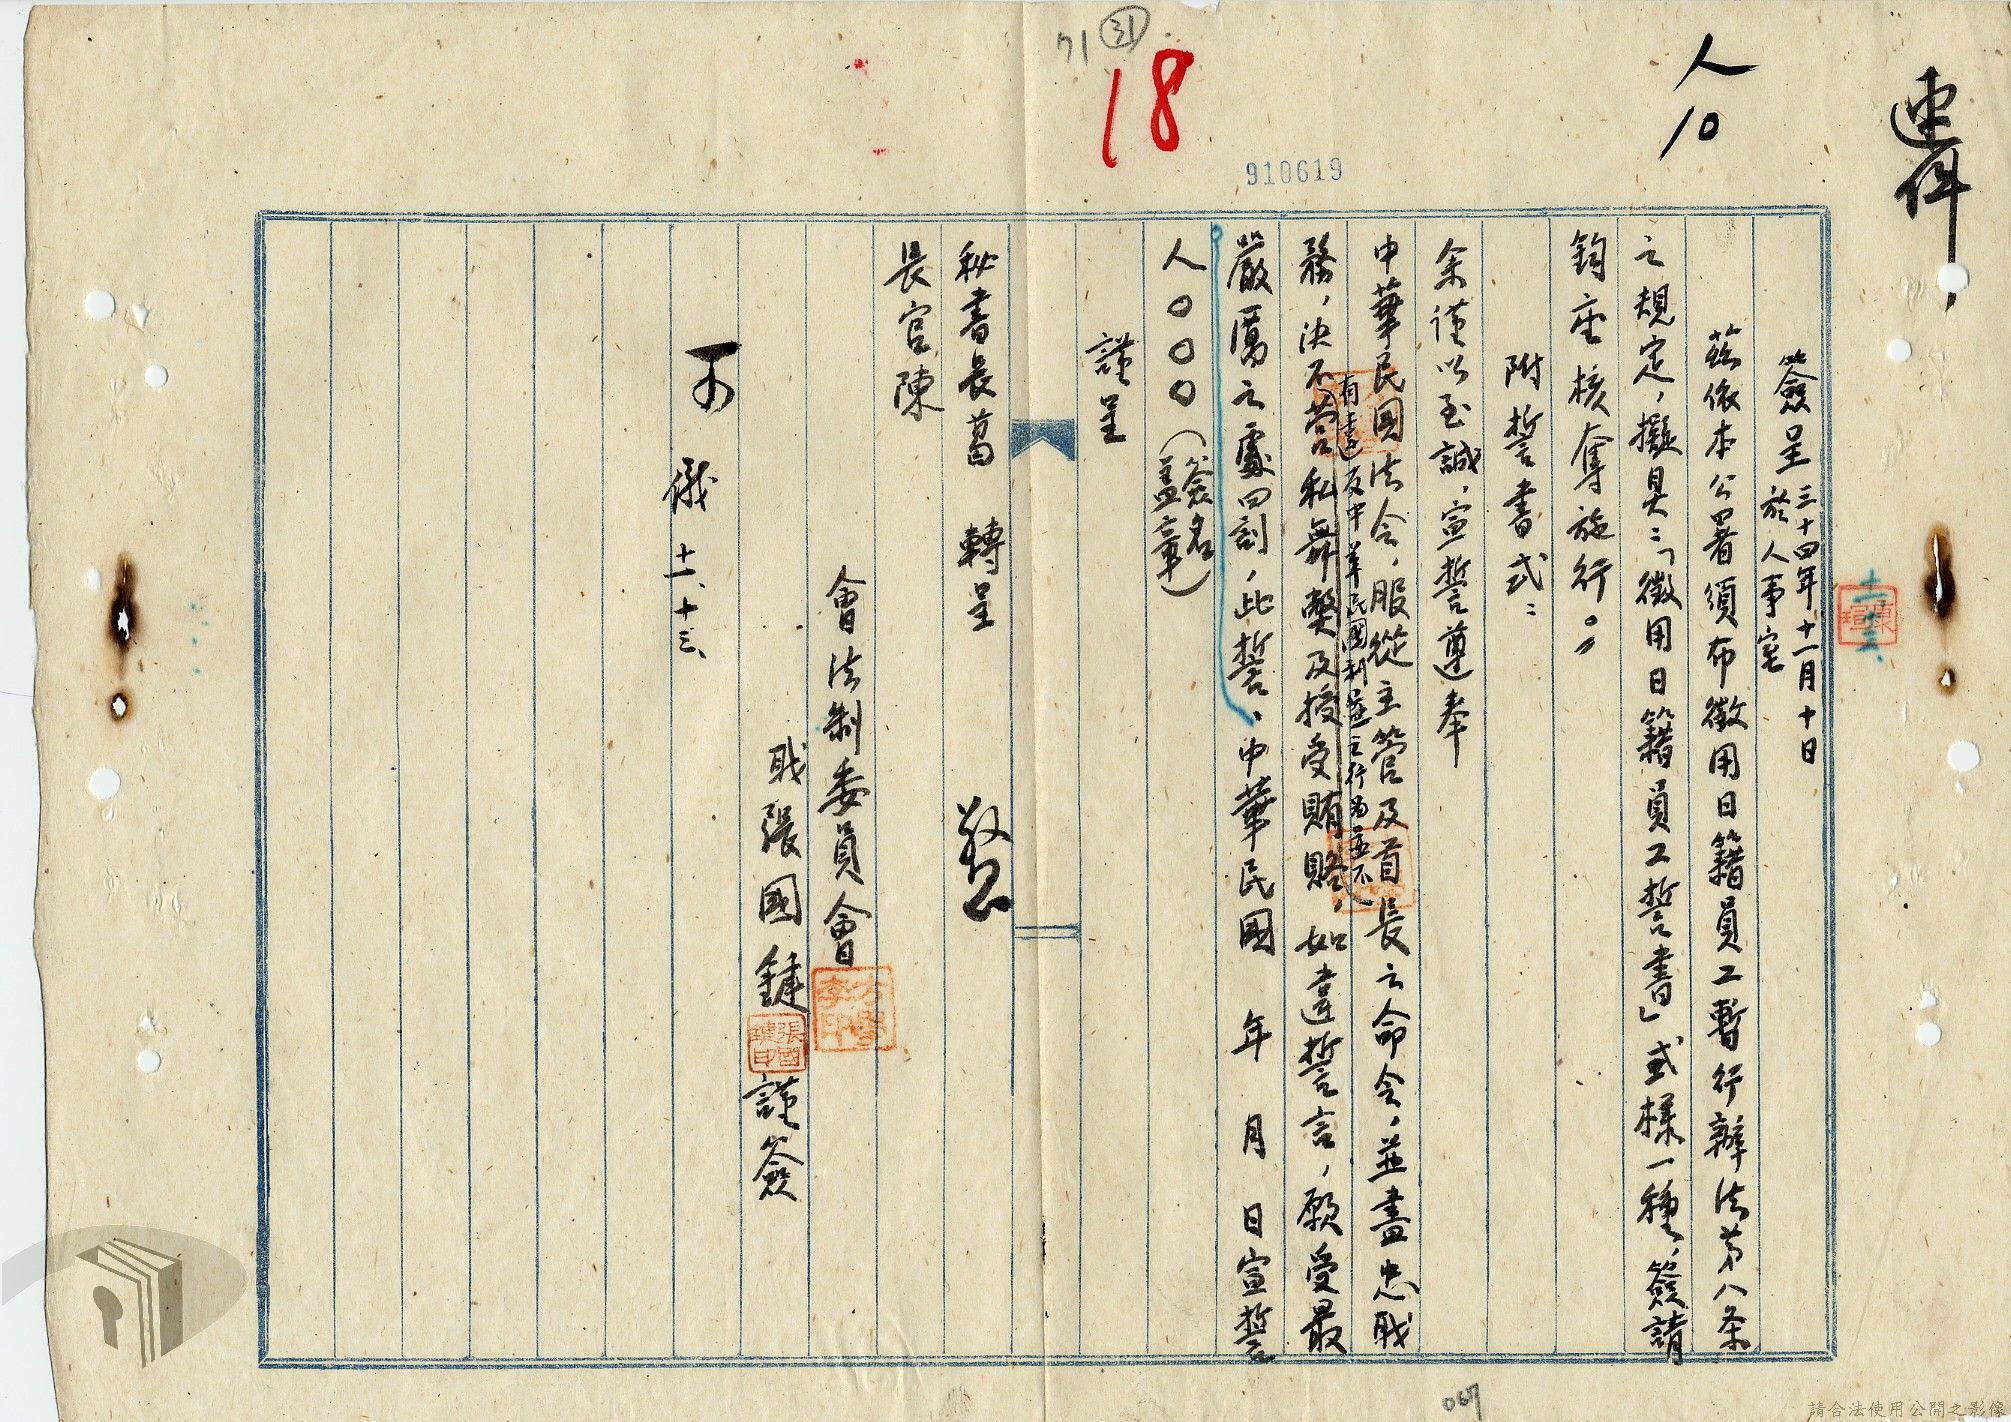 速件
人
10
71 31
18
910619
簽呈 三十四年十一月十日
於人事室
茲依本公署頒布徵用日籍員工暫行辦法第八条
之規定，擬具：「徵用日籍員工誓書」式樣一種，簽請
鈞座核奪施行。
附誓書式：
余謹以至誠，宣誓遵奉
中華民國法令，服從主管及首長之命令，並盡忠職
有違反中華民國利益之行為並不
務，決不營私舞弊及授受賄賂，如違誓言，願受最
嚴厲之處罰，此誓、中華民國　年　月　日宣誓
人○○○（簽名
蓋章）
謹呈
秘書長葛　轉呈
長官陳
會法制委員會
方學李印
職張國鍵
張國鍵印
謹簽
可
儀 十一、十三、
067
請合法使用公開之影像